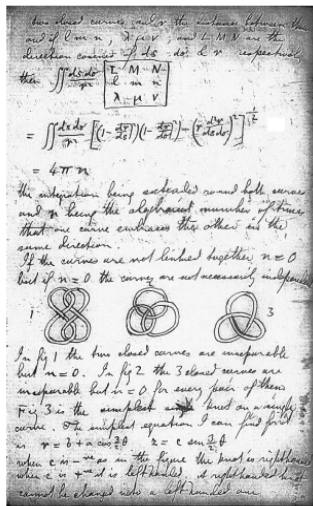 two closed curves, and r the distance between them
and if l m n, λ μ ν, and L M N are the
direction cosines of ds dσ & r respectively
then ∬ ds dσ / r² | L M N | l m n | λ μ ν |
= ∬ ds dσ / r² [(1 - dr/ds|²)(1 - dr/dσ|²) - (r d²r/ds dσ)²]^1/2
= 4 π n
the integration being extended round both curves
and n being the algebraical number of times
that one curve embraces the other in the
same direction
If the curves are not linked together n = 0
but if n = 0 the curves are not necessarily independent
1 3
In fig 1 the two closed curves are inseparable
but n = 0. In fig 2 the 3 closed curves are
inseparable but n = 0 for every pair of them
Fig 3 is the simplest knot on a single
curve. The simplest equation I can find for it
is r = b + a cos 3/2 θ z = c sin 3/2 θ
when c is -ve as in the figure the knot is right handed
when c is +ve it is left handed. A right handed knot
cannot be changed into a left handed one